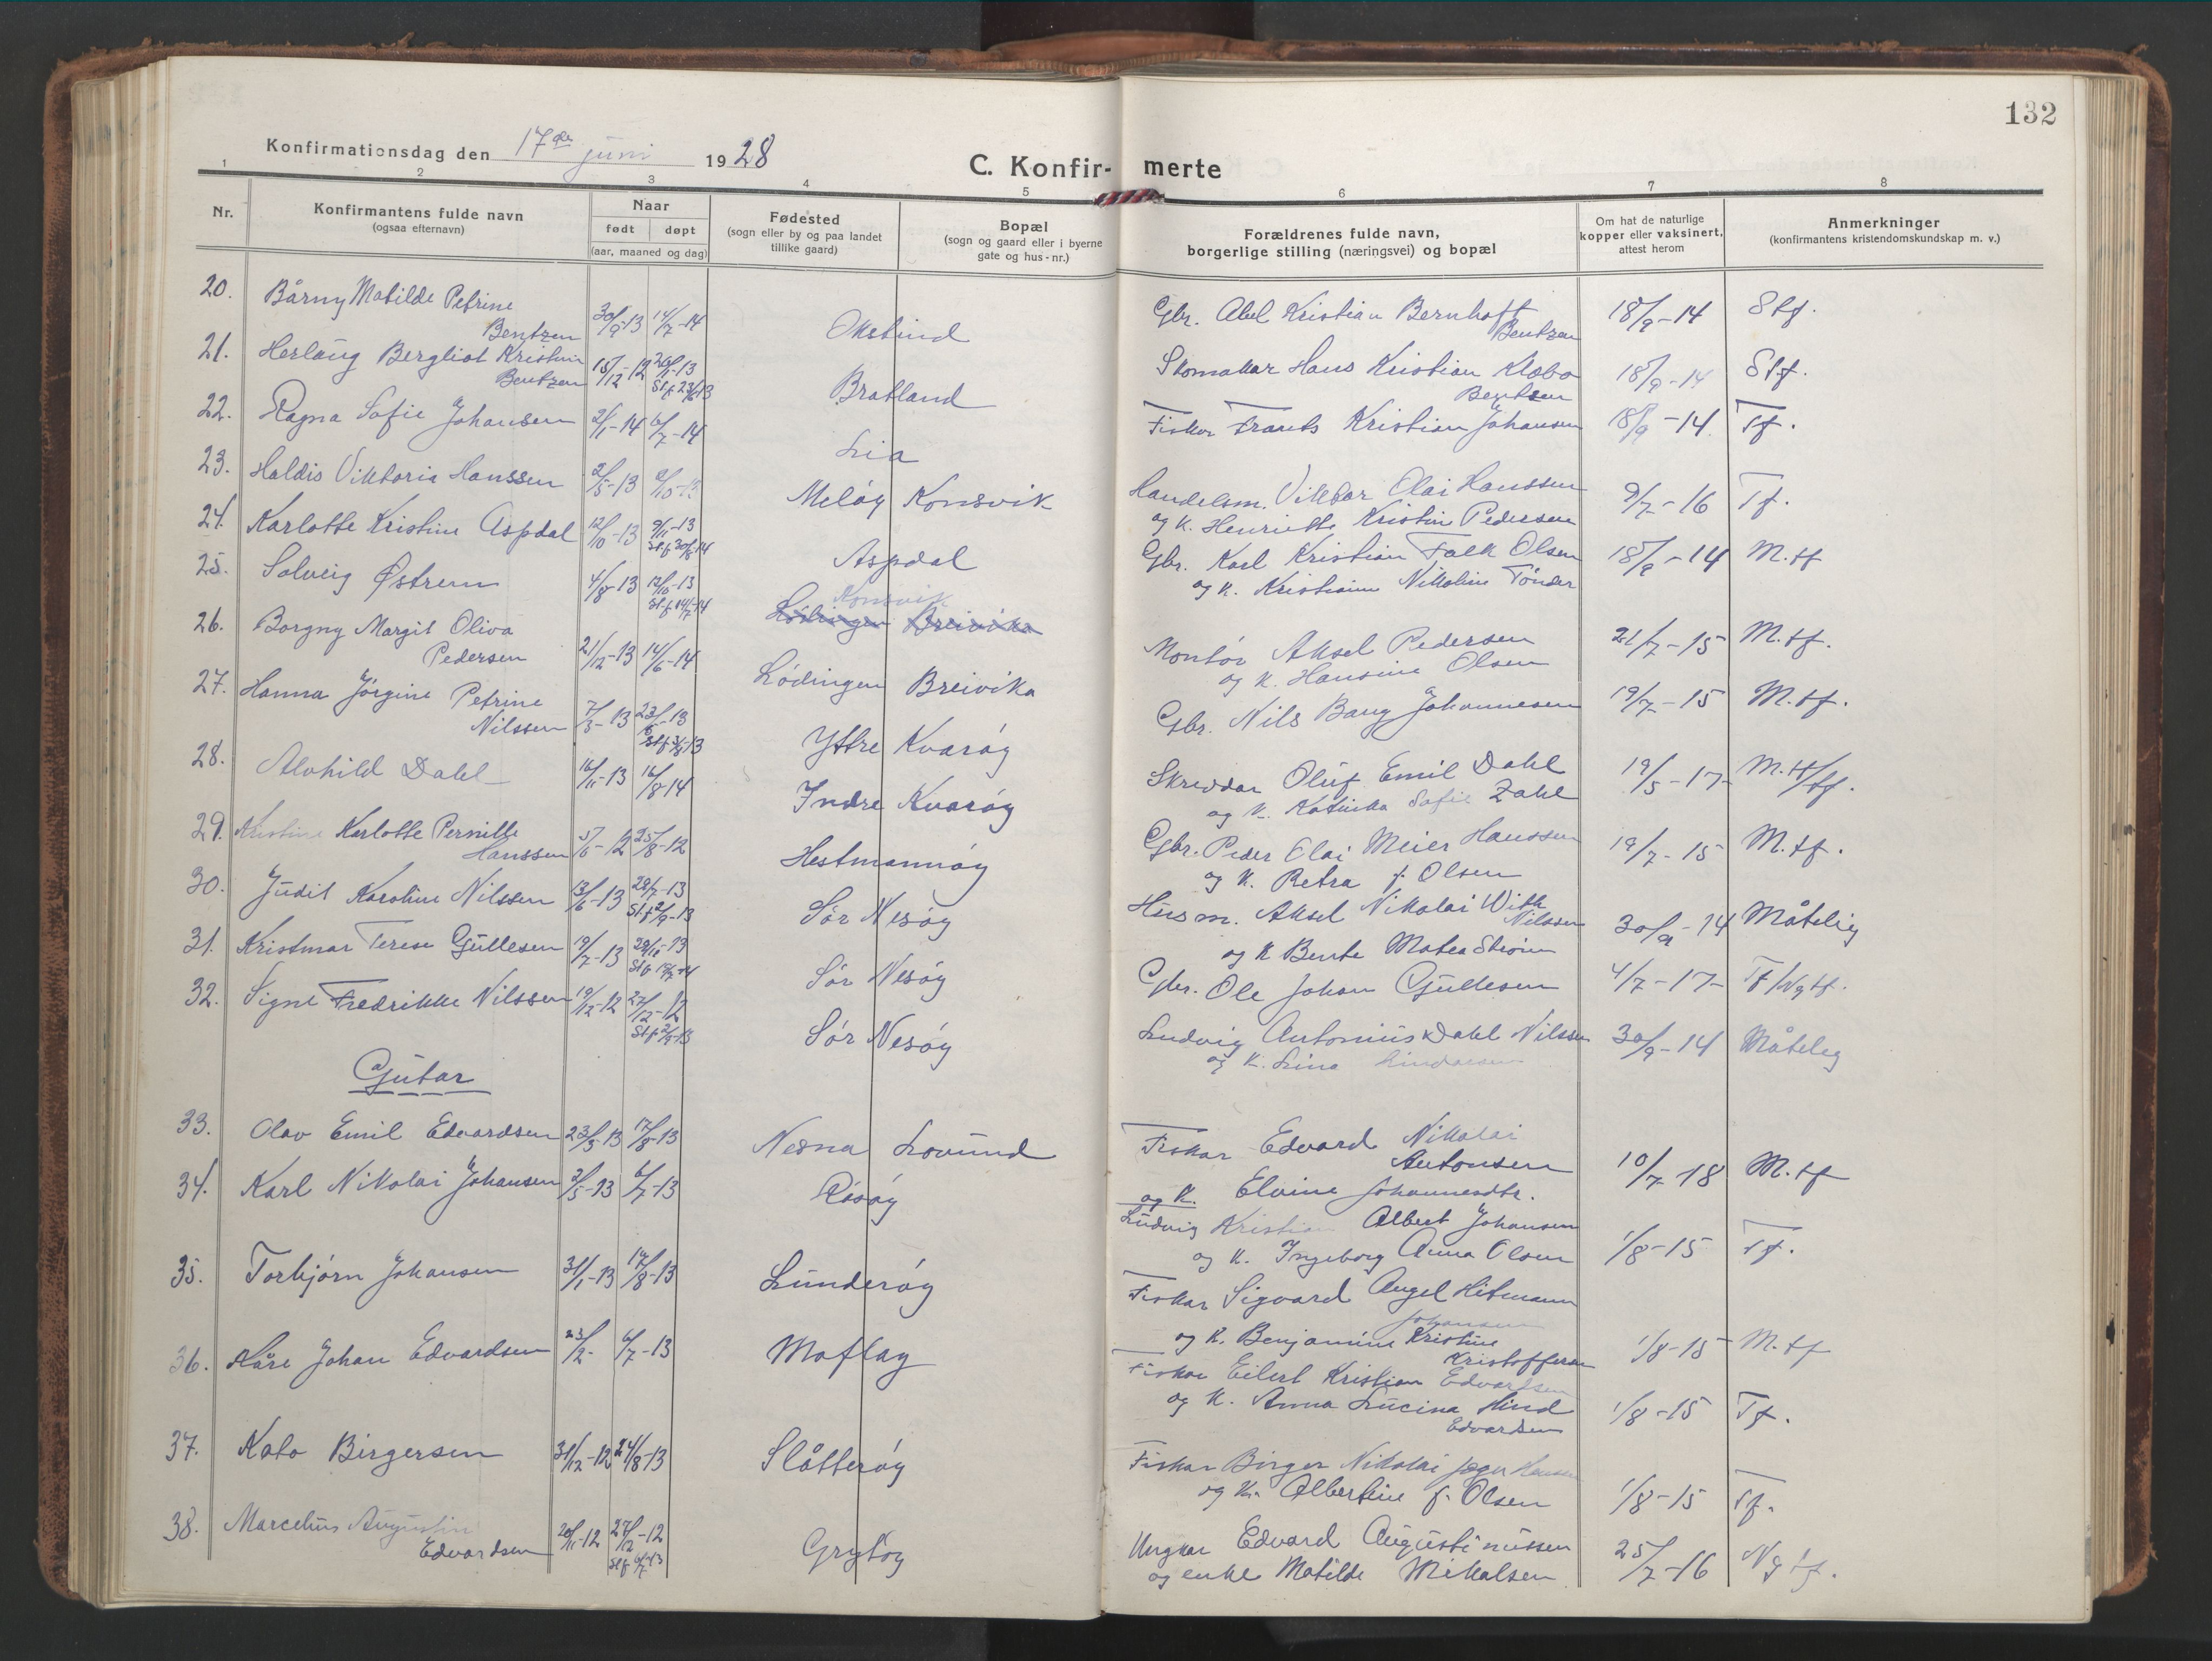 132
Konfirmationsdag den 17de juni 1928
C. Konfir- merte
1 2 3 4 5 6 7 8
Nr.
Konfirmantens fulde navn
(ogsaa efternavn)
Naar
født døpt
(aar, maaned og dag)
Fødested
(sogn eller by og paa landet
tillike gaard)
Bopæl
(sogn og gaard eller i byerne
gate og hus-nr.)
Forældrenes fulde navn,
borgerlige stilling (næringsvei) og bopæl
Om hat de naturlige
kopper eller vaksinert,
attest herom
Anmerkninger
(konfirmantens kristendomskundskap m. v.)
20. Bårny Matilde Petrine
Bentzen 30/9-13 14/7-14 Okstind Gbr. Abel Kristian Bernhoft
Bentzen 18/9-14 Stf.
21. Herlaug Bergliot Kristine
Bentzen 15/12-12 26/1-13
Stf 23/6 13 Bratland Skomakar Hans Kristian Klæbo
Bentzen 18/9-14 Stf.
22. Ragna Sofie Johansen 2/1-14 6/7-14 Lia Fisker Frants Kristian Johansen 18/9-14. Tf.
23. Haldis Viktoria Hanssen 2/5-13 2/10-13 Meløy Konsvik Handelsm. Viktor Olai Hanssen
og K. Henriette Kristine Pedersen 9/7-16 Tf.
24. Karlotte Kristine Aspdal 12/10-13 9/11-13
Stf 30/8-14 Aspdal Gbr. Karl Kristian Falk Olsen
og K. Kristianne Nikoline Tønder 18/9-14 M.tf
25. Solveig Østrem 4/8-13 12/10-13
Stf 14/7-14 Konsvik
Lødingen Breivika
26. Borgny Margit Oliva
Pedersen 21/12-13 14/6-14 Lødingen Breivika Montør Aksel Pedersen
og K. Hansine Olsen 21/7-15 M.tf.
27. Hanna Jørgine Petrine
Nilssen 7/3-13 23/6-13
Stf 3/8-13 Yttre Kvarøy Gbr. Nils Bang Johannesen 19/7-15 M.tf.
28. Alvhild Dahl 16/11-13 16/8-14 Indre Kvarøy Skreddar Oluf Emil Dahl
og K. Katinka Sofie Zahl 19/5-17- M.tf/tf.
29. Kristine Karlotte Pernille
Hanssen 5/6-12 25/8-12 Hestmannøy Gbr. Peder Olai Meier Hanssen
og K. Petra f. Olsen 19/7-15 M.tf.
30. Judit Karoline Nilssen 13/6-13 28/7-13
Stf 2/9-13 Sør Nesøy Husm. Aksel Nikolai With
Nilssen
og K Bente Matea Strøm 30/9-14 Måtelig
31. Kristmar Terese Gullesen 19/7-13 29/10-13
Stf 19/7-14 Sør Nesøy Gbr. Ole Johan Gullesen 4/7-17- Tf/Ngtf.
32. Signe Fredrikke Nilssen 19/12-12 27/12-12
Stf 2/9-13 Sør Nesøy Ludvig Antonius Dahl Nilssen
og K. Lina 30/9-14 Måteleg
Gutar
33. Olav Emil Edvardsen 23/3-13 17/8-13 Nesna Lovund Fiskar Edvard Nikolai
Antonsen
og K. Elvine Johannesdtr. 10/7-18 M.tf
34. Karl Nikolai Johansen 2/5-13 6/7-13 Råsøy Ludvig Kristian Albert Johansen
og K. Ingeborg Anna Olsen 1/8-15 Tf.
35. Torbjørn Johansen 31/1-13 17/8-13 Lunderøy Fiskar Sigvard Angel Hitmann
Johansen
og K. Benjamine Kristine
Kristoffersen 1/8-15 M.tf
36. Kåre Johan Edvardsen 23/2- 6/7-13 Moflag Fiskar Eilert Kristian Edvardsen
og K. Anna Lucina Hind
Edvardsen 1/8-15 Tf.
37. Kato Birgersen 31/12-12 24/8-13 Slåtterøy Fiskar Birger Nikolai Jæger Hansen
og K. Albertine f. Olsen 1/8-15 Tf.
38. Marcelius Augustin
Edvardsen 20/11-12 27/12-12
Stf 6/7-13 Grytøy Ungkar Edvard Augustinussen
og enke Matilde Mikalsen 25/7-16 Ng tf.